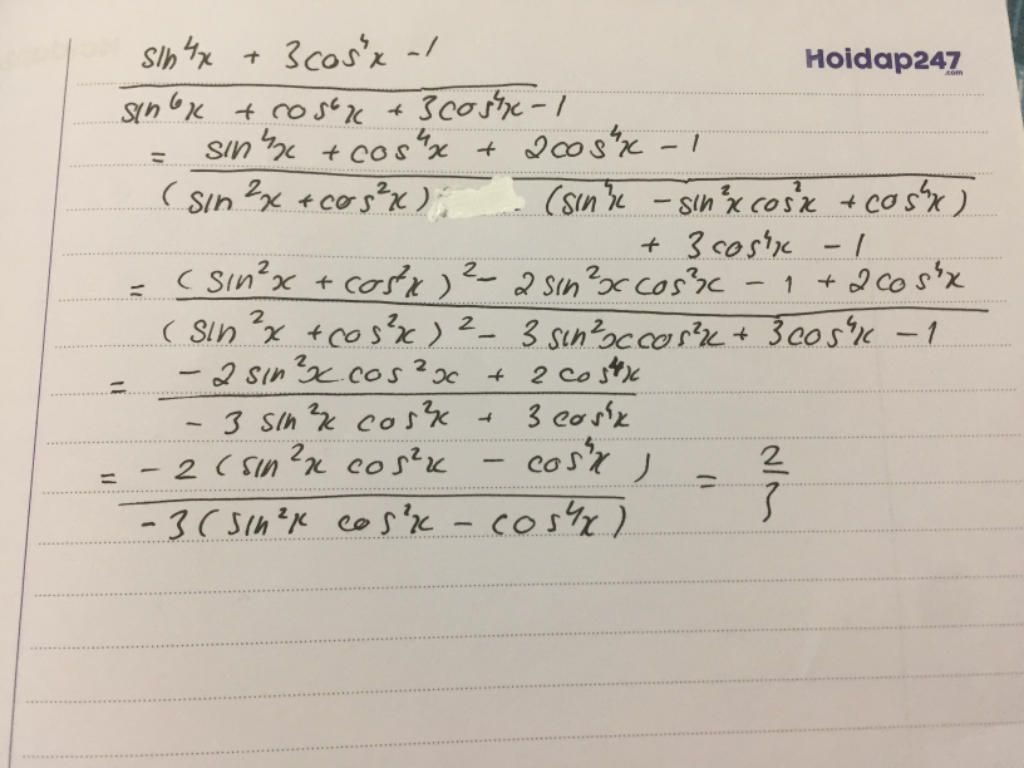 sin⁴x + 3cos⁴x - 1
Hoidap247
.com
sin⁶x + cos⁶x + 3cos⁴x - 1
= sin⁴x + cos⁴x + 2cos⁴x - 1
(sin²x + cos²x) (sin⁴x - sin²x cos²x + cos⁴x)
+ 3cos⁴x - 1
= (sin²x + cos²x)² - 2 sin²x cos²x - 1 + 2cos⁴x
(sin²x + cos²x)² - 3 sin²x cos²x + 3cos⁴x - 1
= - 2 sin²x.cos²x + 2cos⁴x
- 3 sin²x cos²x + 3cos⁴x
= - 2 (sin²x cos²x - cos⁴x) = 2
- 3 (sin²x cos²x - cos⁴x) 3